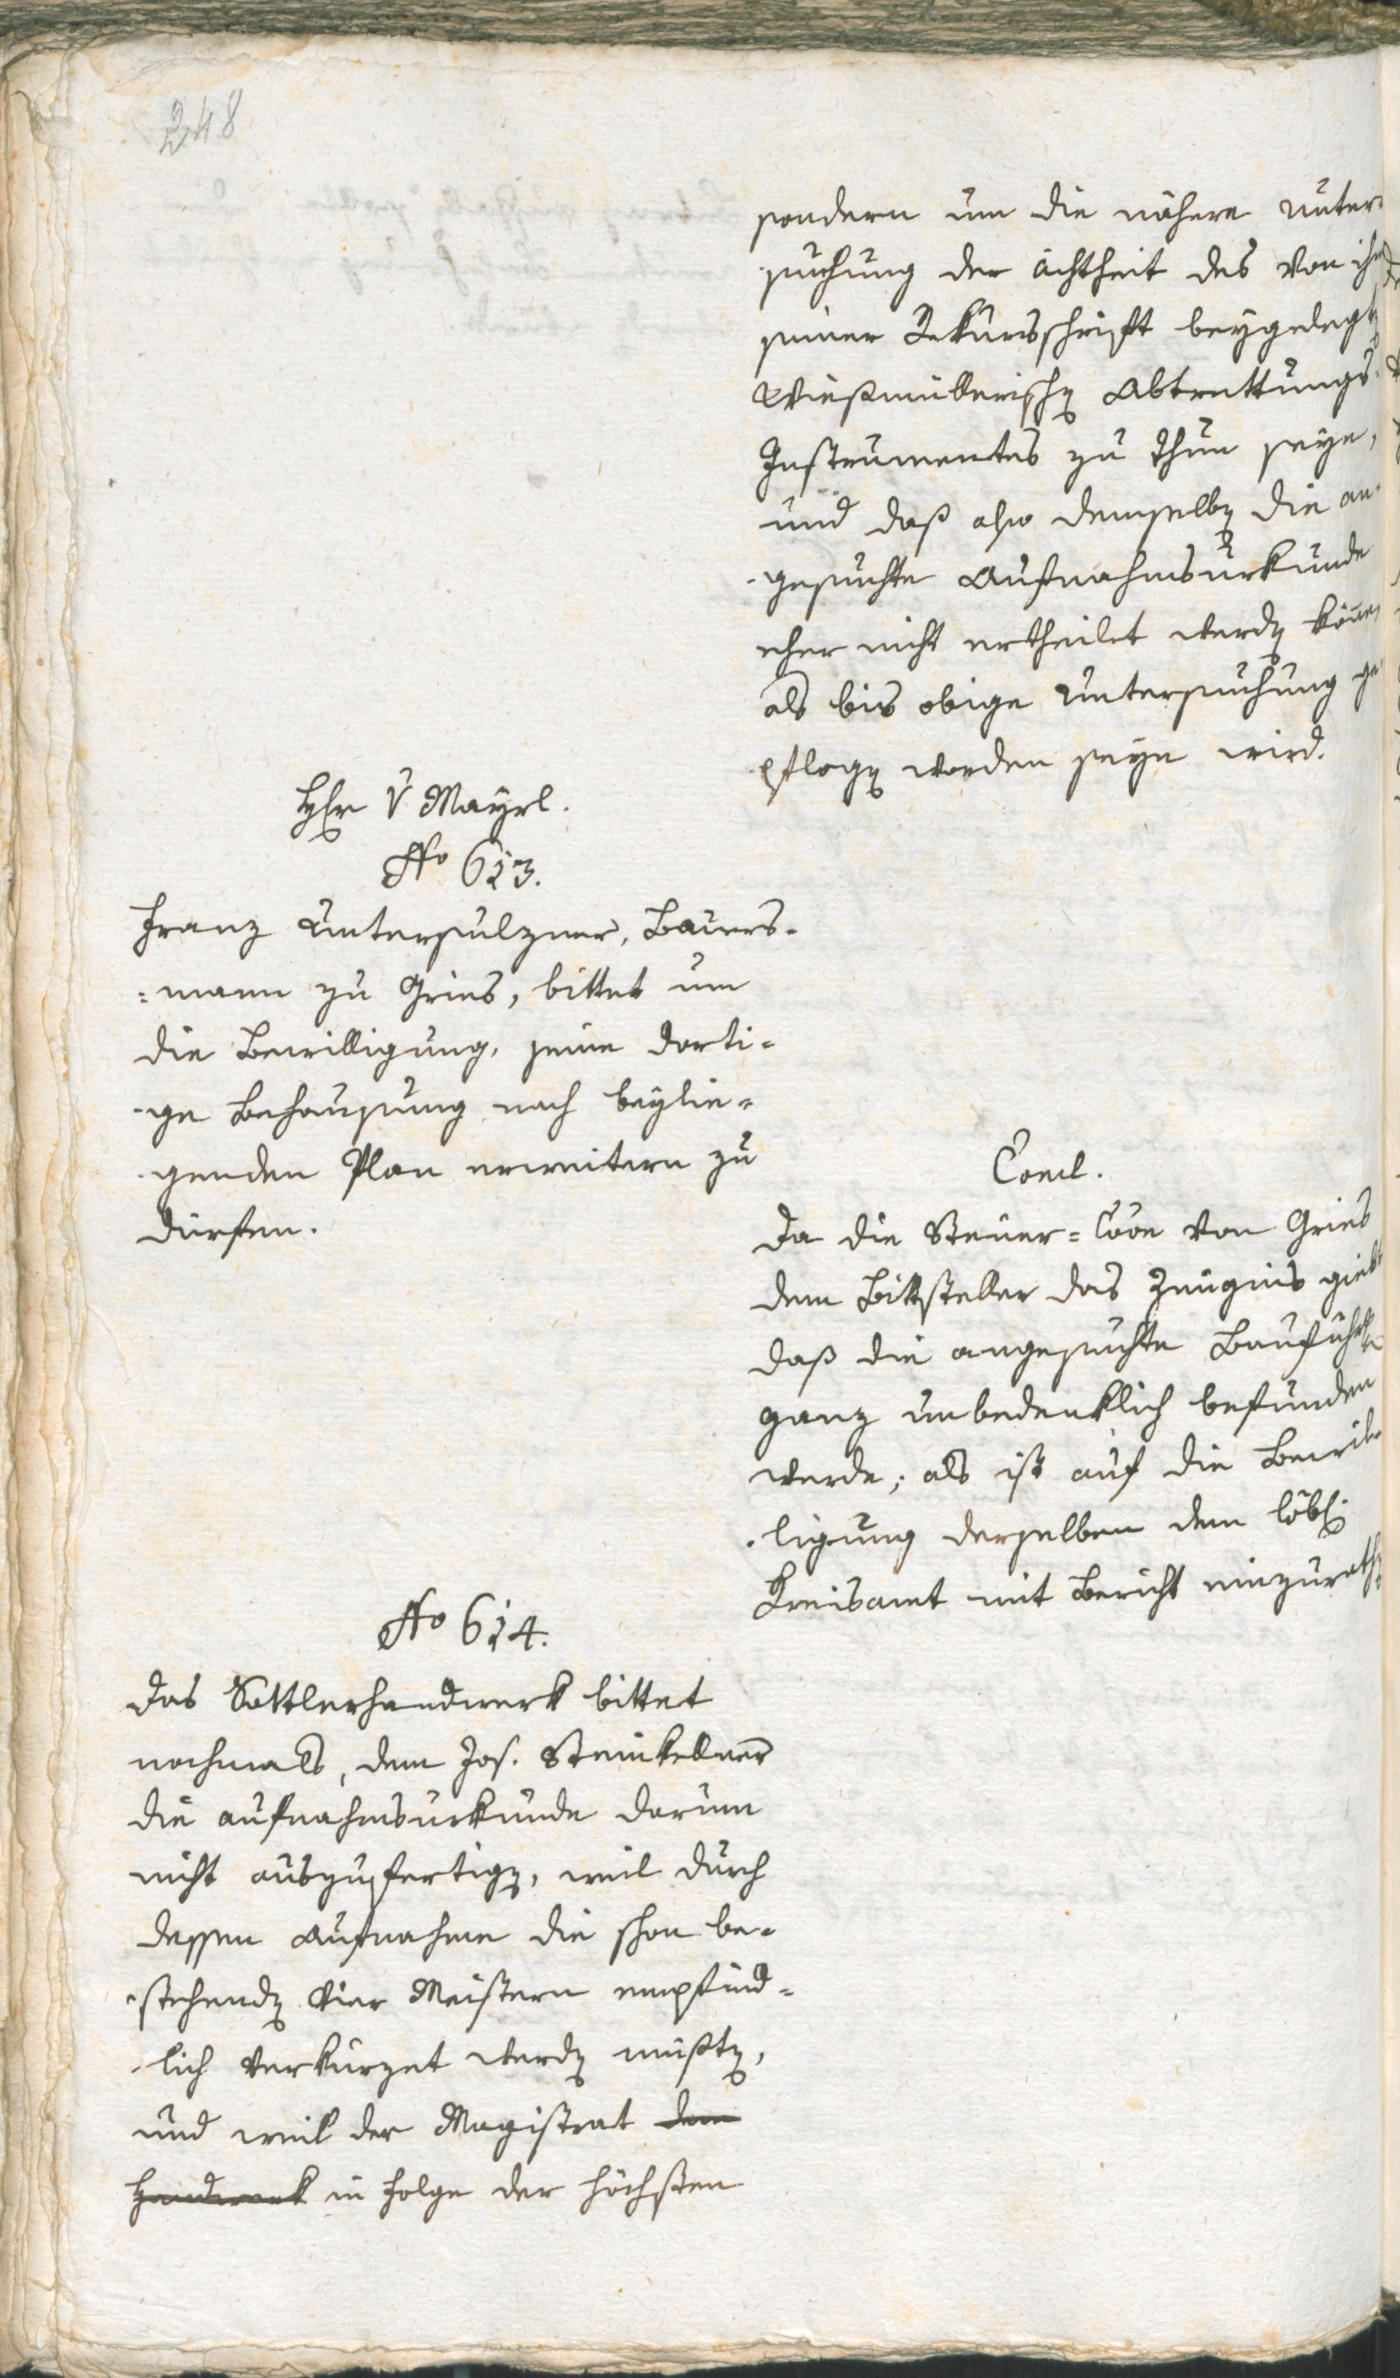 248
sondern um die nähere unter-
suchung der ächtheit des von ihm
seiner Rekursschrift beygelegt
Wießmüllerisch Abtrettungs-
Instrumentes zu thun seye,
und daß also demselb die an-
gesuchte Aufnahmsurkunde
eher nicht ertheilet werd könne
als bis obige Untersuchung ge-
pflog worden seyn wird.
Hr V Mayrl.
No 613.
Franz Untersulzner, Bauers-
=mann zu Gries, bittet um
die Bewilligung, seine dorti-
-ge Behausung nach beylie-
genden Plan erweitern zu
dürfen.
Concl.
Da die Steuer=Coon von Gries
dem Bittsteller das Zeugnis giebt
daß die angesuchte Bauführ
ganz unbedenklich befunden
werde; als ist auf die Bewil-
ligung derselben dem löbl.
Kreisamt mit Bericht einzurath
No 614.
Das Sattlerhandwerk bittet
nochmals, dem Jos. Steinkellner
die aufnahmsurkunde darum
nicht auszufertig, weil durch
dessen Aufnahme die schon be-
stehend vier Meistern empfind-
lich verkürzet werd müßt,
und weil der Magistrat dem
Handwerk in Folge der höchsten